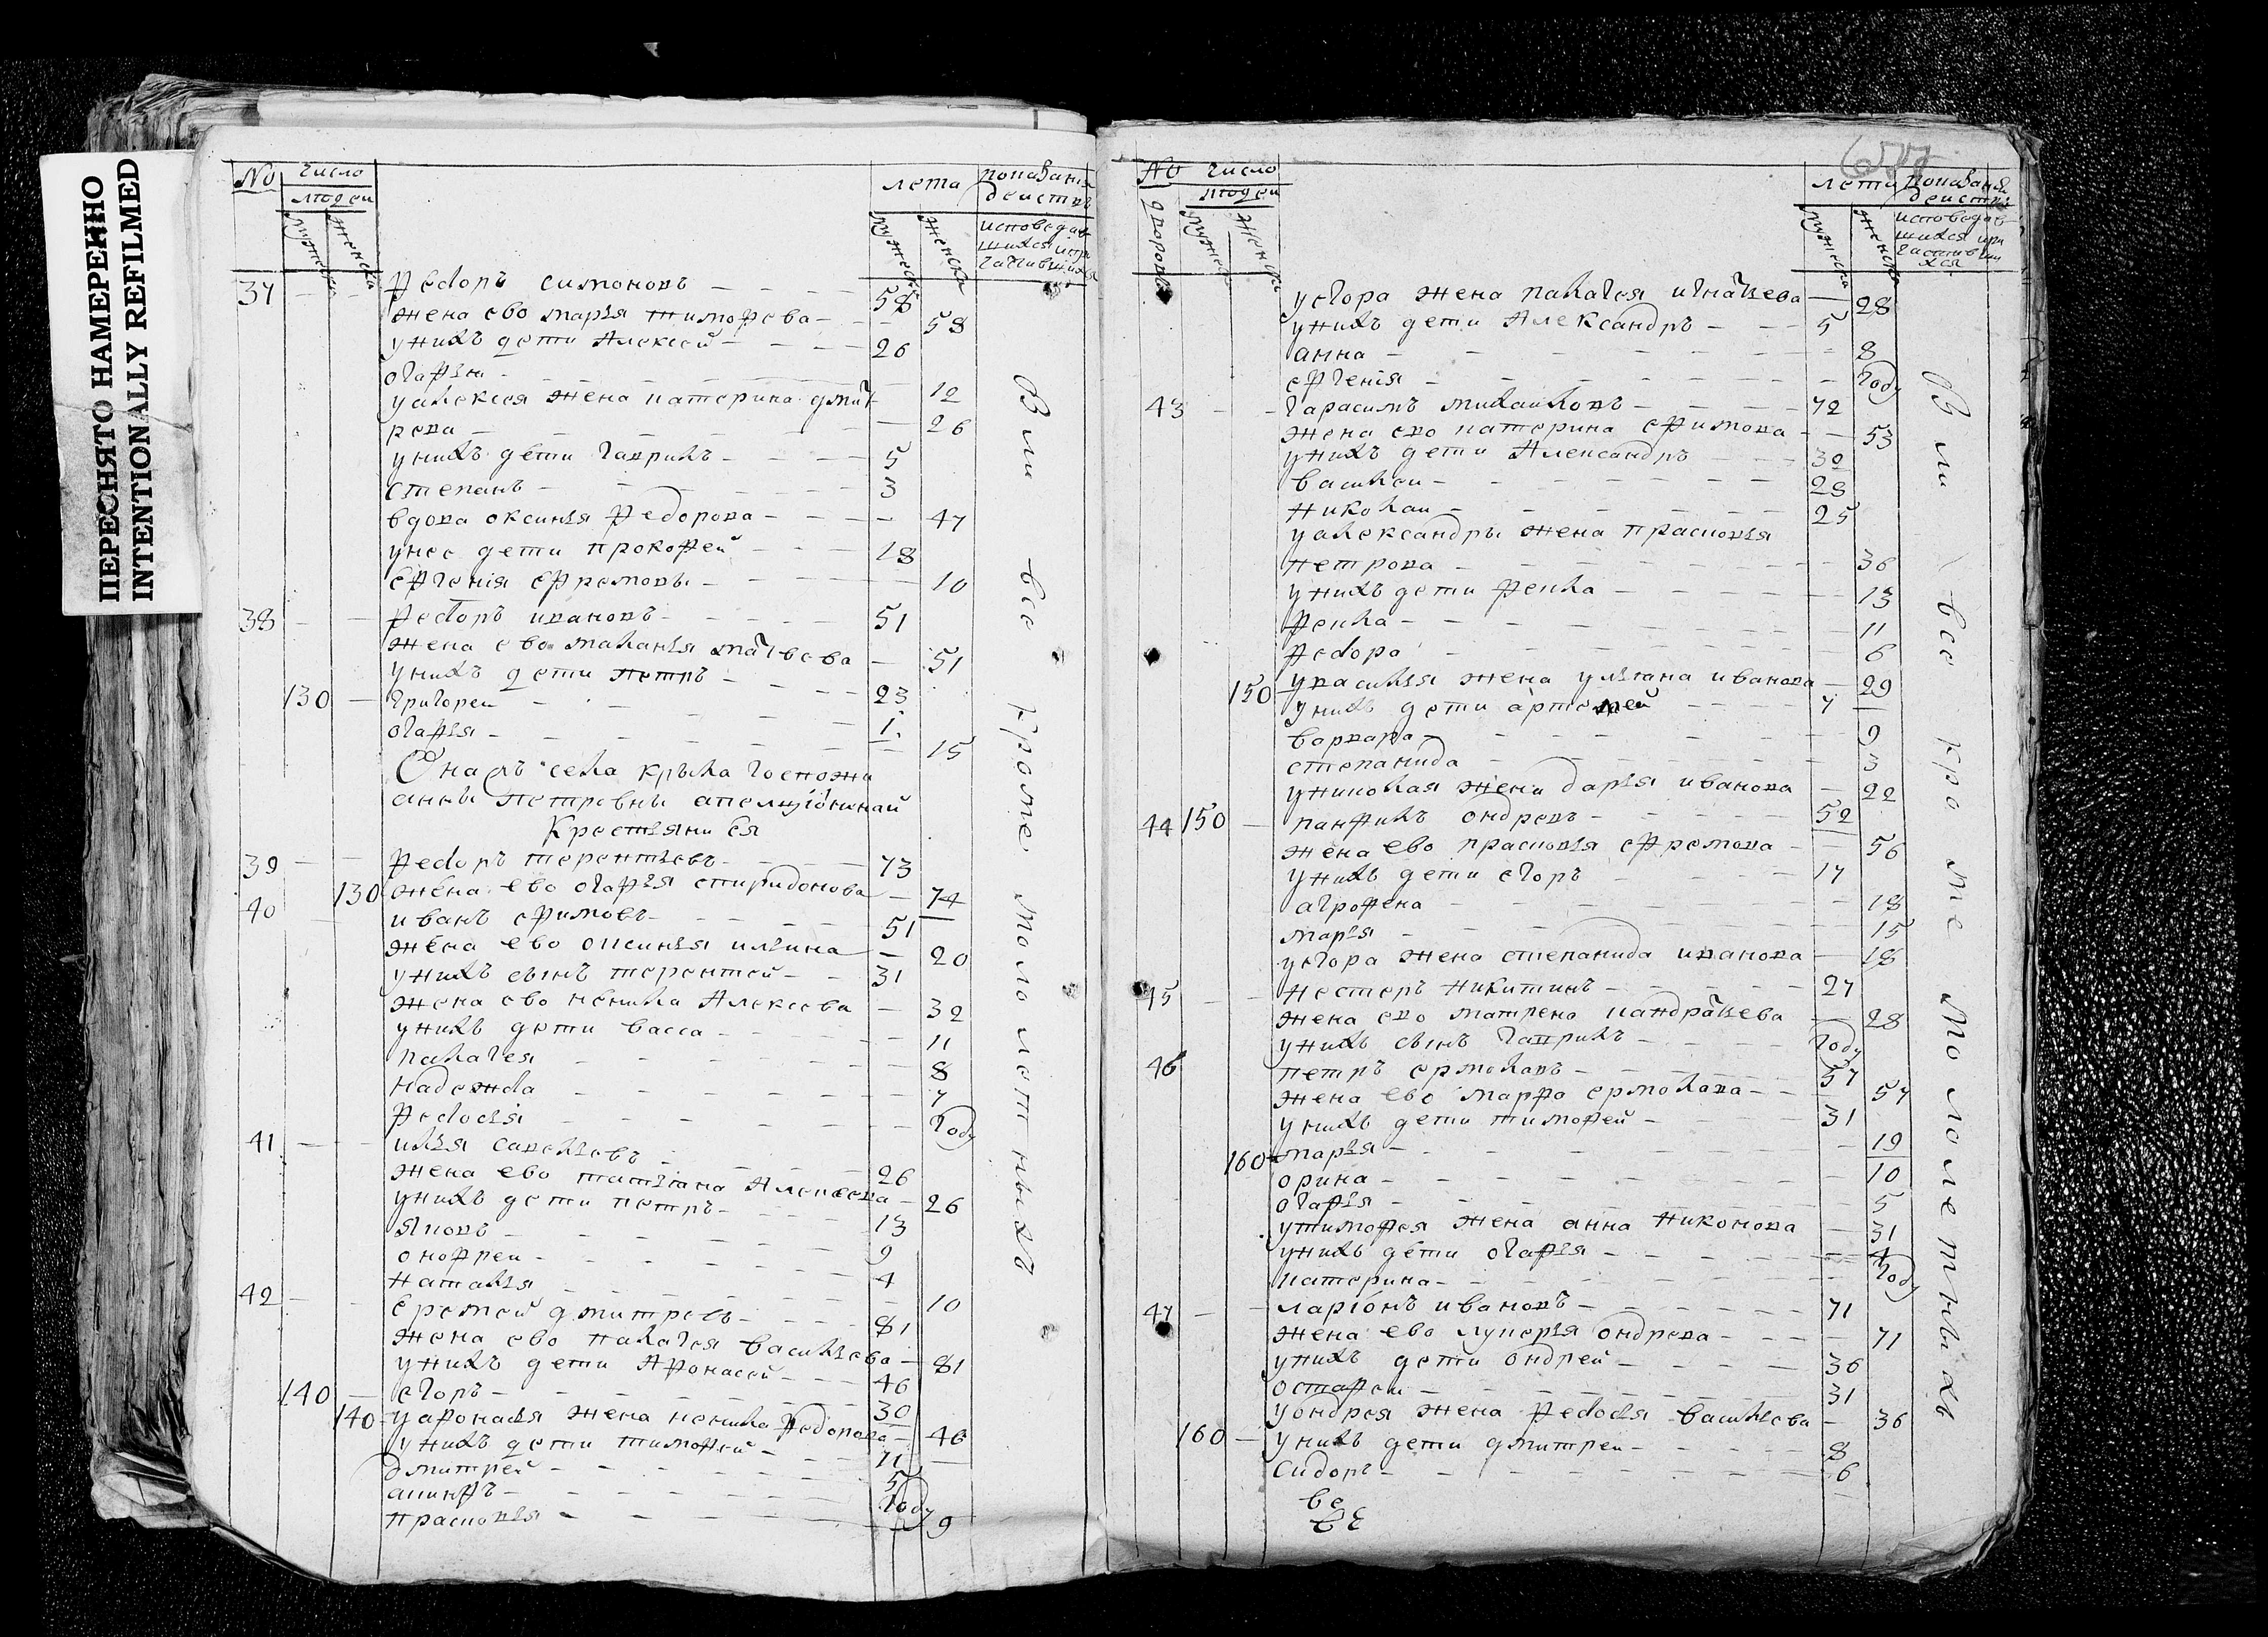 ПЕРЕСНЯТО НАМЕРЕННО
INTENTIONALLY REFILMED
No число людеи лета показание
мужеска женска мужеска женска
37 Ѳедоръ симоновъ 58
жена ево марья тимоѳева 58
унихъ дети Алексеи 26
огаѳья 12
уалексея жена катерина дмит
рева 26
унихъ дети гаврилъ 5
степанъ 3
вдова оксинья Ѳедорова 47
унее дети прокоѳеи 18
еѵгенія еѳремовы 10
38 Ѳедоръ ивановъ 51
жена ево маланья матвеева 51
унихъ дети петръ 23
130 григореи 1
огаѳья 15
Онаго села крыла госпожи
анны петровны
крестьяни ея
39 Ѳедоръ терентьевъ 73
130 жена ево огаѳья спиридонова 74
40 иванъ еѳимовъ 51
жена ево оксинья ильина 20
унихъ сынъ терентеи 31
жена ево некила Алексеева 32
унихъ дети васса 11
палагея 8
надежда 7
Ѳедосья году
41 илья савельевъ 26
жена ево татьяна Алексеева 26
унихъ дети петръ 13
яковъ 9
оноѳреи 4
наталья 10
42 еремеи дмитревъ 81
жена ево палагея васильева 81
унихъ дети Аѳонасеи 46
140 егоръ 30
140 уаѳонасья жена некила Ѳедорова 46
унихъ дети тимоѳеи 11
дмитреи 5
акинѳъ году
прасковья 9
Вли все кроме малолетныхъ
657
No дворовъ число людеи лета показание
мужеска женска мужеска женска
уегора жена палагея игнатьева 28
унихъ дети Александръ 5
анна 8
еѵгенія году
43 гарасимъ михаиловъ 72
жена ево катерина еѳимова 53
унихъ дети Александръ 30
василеи 28
николаи 25
уалександры жена прасковья
петрова 36
унихъ дети Ѳекла 13
Ѳекла 11
Ѳедора 6
150 увасилья жена ульяна иванова 29
унихъ дети артемеи 7
варвара 9
степанида 3
униколая жена дарья иванова 22
44 150 панѳилъ ондревъ 52
жена ево прасковья еѳремова 56
унихъ дети егоръ 17
агроѳена 18
марья 15
уегора жена степанида иванова 18
45 нестеръ никитинъ 27
жена ево матрена кандратьева 28
унихъ сынъ гаврилъ году
46 петръ ермолавъ 57
жена ево марѳа ермолава 57
унихъ дети тимоѳеи 31
160 марья 19
орина 10
огаѳья 5
утимоѳея жена анна никонова 31
унихъ дети огаѳья 4
катерина году
47 ларіонъ ивановъ 71
жена ево лукерья ондрева 71
унихъ дети ондреи 36
остаѳеи 31
уондрея жена Ѳедосья васильева 36
160 унихъ дети дмитреи 8
сидоръ 6
ве
Вли все кроме малолетныхъ